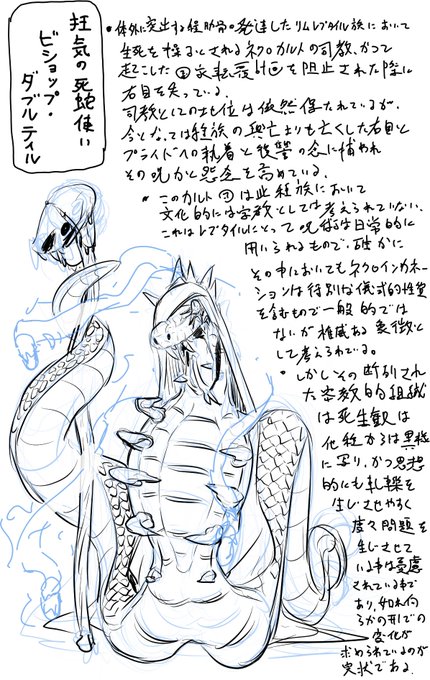 狂気の死蛇使い
ビショップ・
ダブルテイル
・体外に突出する怪肋骨の発達したリムレプタイル族において
生死を操るとされるネクロカルトの司教、かつて
起こした国家転覆計画を阻止された際に
右目を失っている。
司教としての地位は依然保たれているが、
今となっては種族の興亡よりも亡くした右目と
プライドへの執着と復讐の念に捕われ
その呪力と怨念を高めている。
・このカルト団は此種族において
文化的には宗教としては考えられていない。
これはレプタイルにとって呪術は日常的に
用いられるもので、確かに
その中においてもネクロインカネー
ションは特別な儀式的性質
を含むもので一般的では
ないが権威ある象徴と
して考えられている。
・しかしその断列され
た宗教的組織
は死生観は
他種からは異様
に写り、かつ思想
的にも軋轢を
生じさせやすく
度々問題を
生じさせて
いる事は憂慮
されている事で
あり、如何
らかの形での
変化が
求められているのが
実状である。